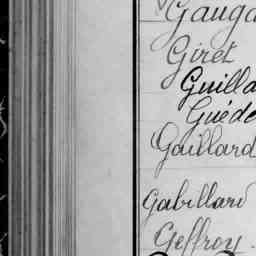 Gauga
Giret
Guilla
Guéde
Gaillard
Gabillard
Geffroy.